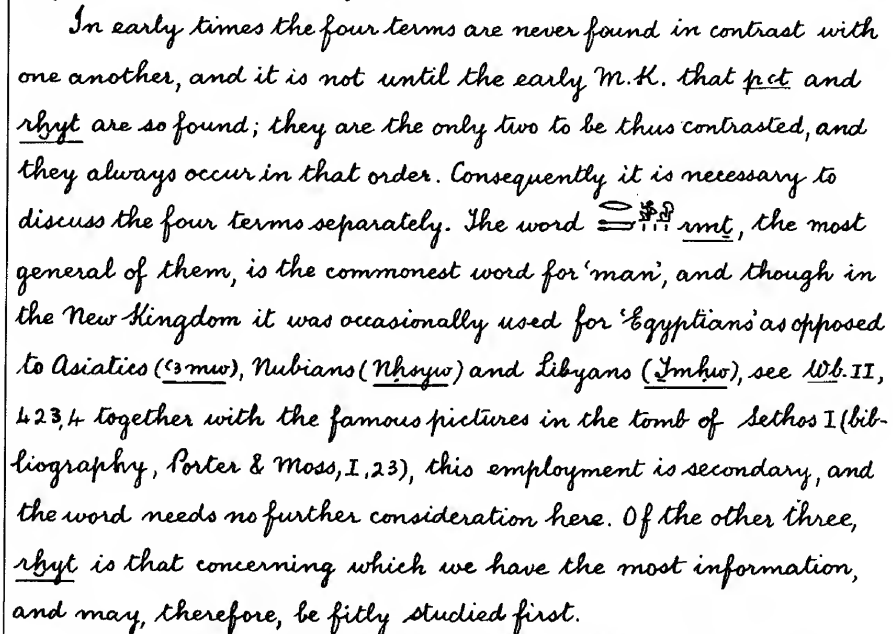 In early times the four terms are never found in contrast with
one another, and it is not until the early M.K. that pꜥt and
rḫyt are so found; they are the only two to be thus contrasted, and
they always occur in that order. Consequently it is necessary to
discuss the four terms separately. The word rmṯ, the most
general of them, is the commonest word for ‘man’, and though in
the New Kingdom it was occasionally used for ‘Egyptians’ as opposed
to Asiatics (ꜥꜣmw), Nubians (Nḥsyw) and Libyans (Ṯmḥw), see Wb. II,
423,4 together with the famous pictures in the tomb of Sethos I (bib-
liography, Porter & Moss, I, 23), this employment is secondary, and
the word needs no further consideration here. Of the other three,
rḫyt is that concerning which we have the most information,
and may, therefore, be fitly studied first.